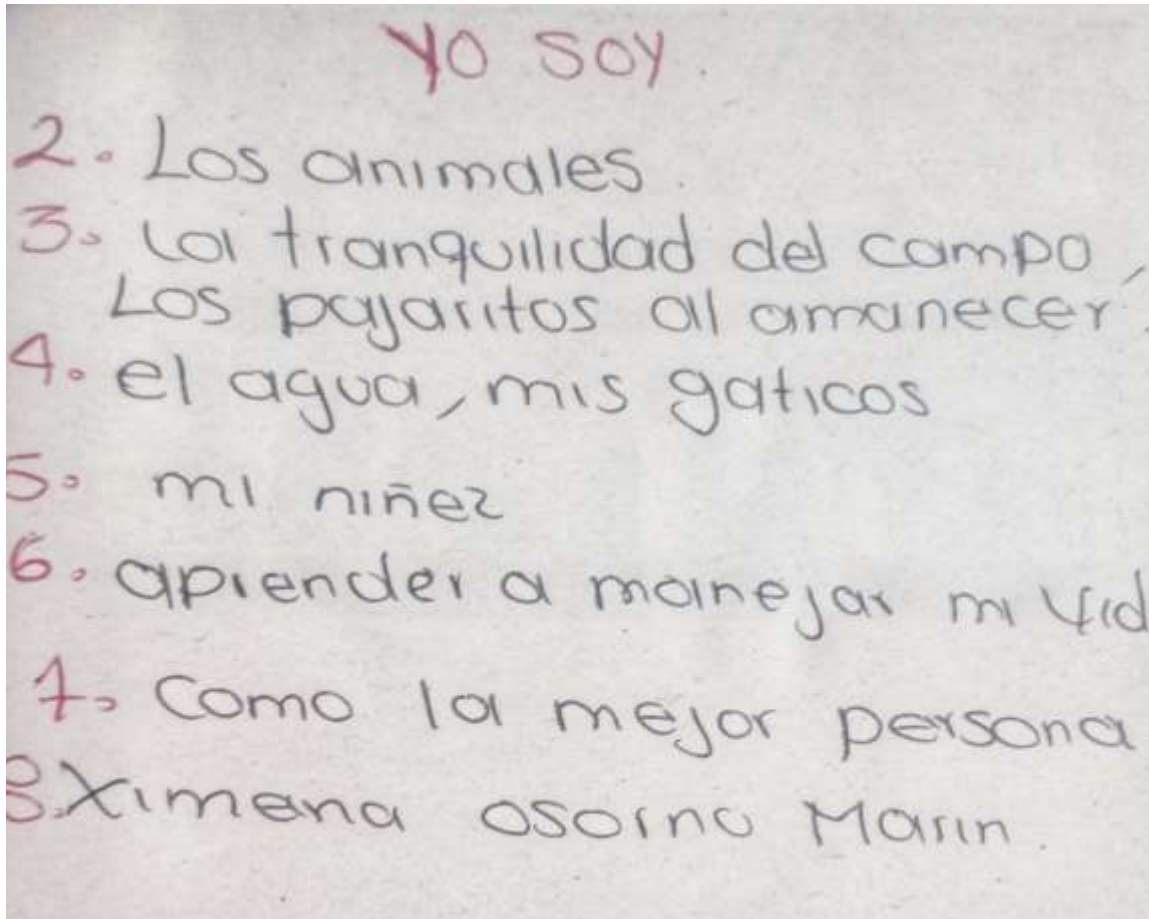 YO SOY.
2. Los animales.
3. La tranquilidad del campo,
Los pajaritos al amanecer.
4. el agua, mis gaticos
5. mi niñez
6. aprender a manejar mi vid
7. Como la mejor persona
8. Ximena osorno Marin.